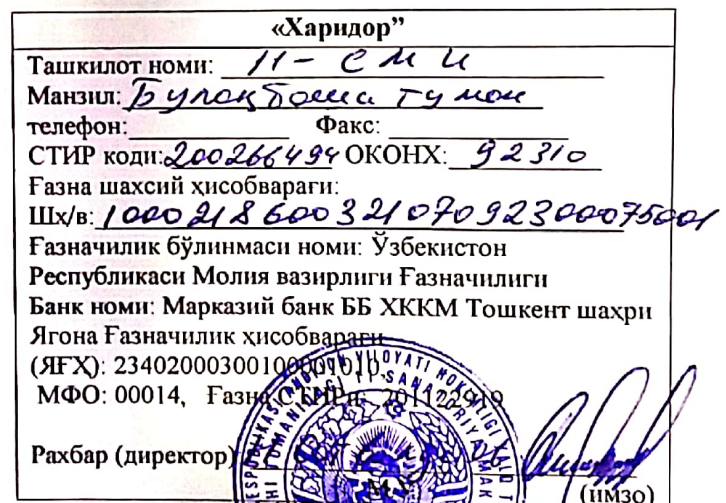 «Харидор”
Ташкилот номи: 11- СМИ
Манзил: Булоқбоши туман
телефон: Факс:
СТИР коди: 200266494 ОКОНХ: 92310
Ғазна шахсий ҳисобварағи:
Шх/в: 100021860032107092300075001
Ғазначилик бўлинмаси номи: Ўзбекистон
Республикаси Молия вазирлиги Ғазначилиги
Банк номи: Марказий банк ББ ХККМ Тошкент шаҳри
Ягона Ғазначилик ҳисобварағи
(ЯҒХ): 23402000300100001010
МФО: 00014, Ғазна СТИРи: 201122919
Рахбар (директор)
(имзо)